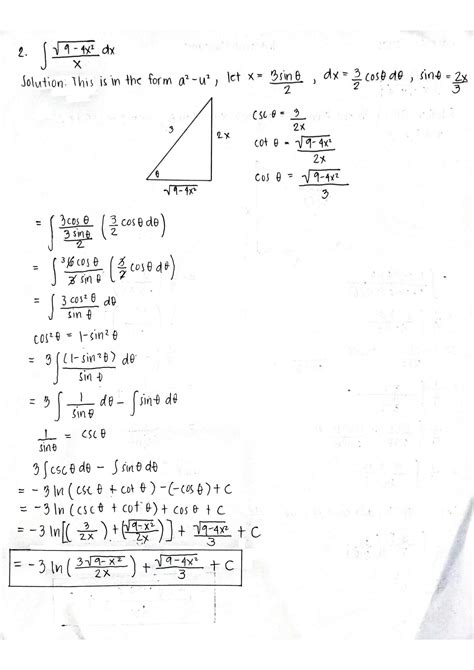 2. ∫ √(9-4x²)/x dx
Solution. This is in the form a²-u², let x = 3sinθ/2, dx = 3/2 cosθ dθ, sinθ = 2x/3
csc θ = 3/2x
3
2x
cot θ = √(9-4x²)/2x
θ
√(9-4x²)
cos θ = √(9-4x²)/3
= ∫ 3cosθ/(3sinθ/2) (3/2 cosθ dθ)
= ∫ 3 6cosθ/3 sinθ (3/2 cosθ dθ)
= ∫ 3cos²θ/sinθ dθ
cos²θ = 1-sin²θ
= 3∫ (1-sin²θ)/sinθ dθ
= 3∫ 1/sinθ dθ - ∫sinθ dθ
1/sinθ = cscθ
3∫cscθ dθ - ∫sinθ dθ
= -3 ln (cscθ + cotθ) - (-cosθ) + C
= -3 ln (cscθ + cotθ) + cosθ + C
= -3 ln [(3/2x) + (√(9-x²)/2x)] + √(9-4x²)/3 + C
= -3 ln (3√(9-x²)/2x) + √(9-4x²)/3 + C